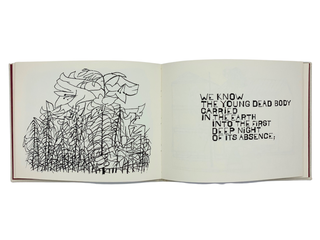 WE KNOW
THE YOUNG DEAD BODY
CARRIED
IN THE EARTH
INTO THE FIRST
DEEP NIGHT
OF ITS ABSENCE,